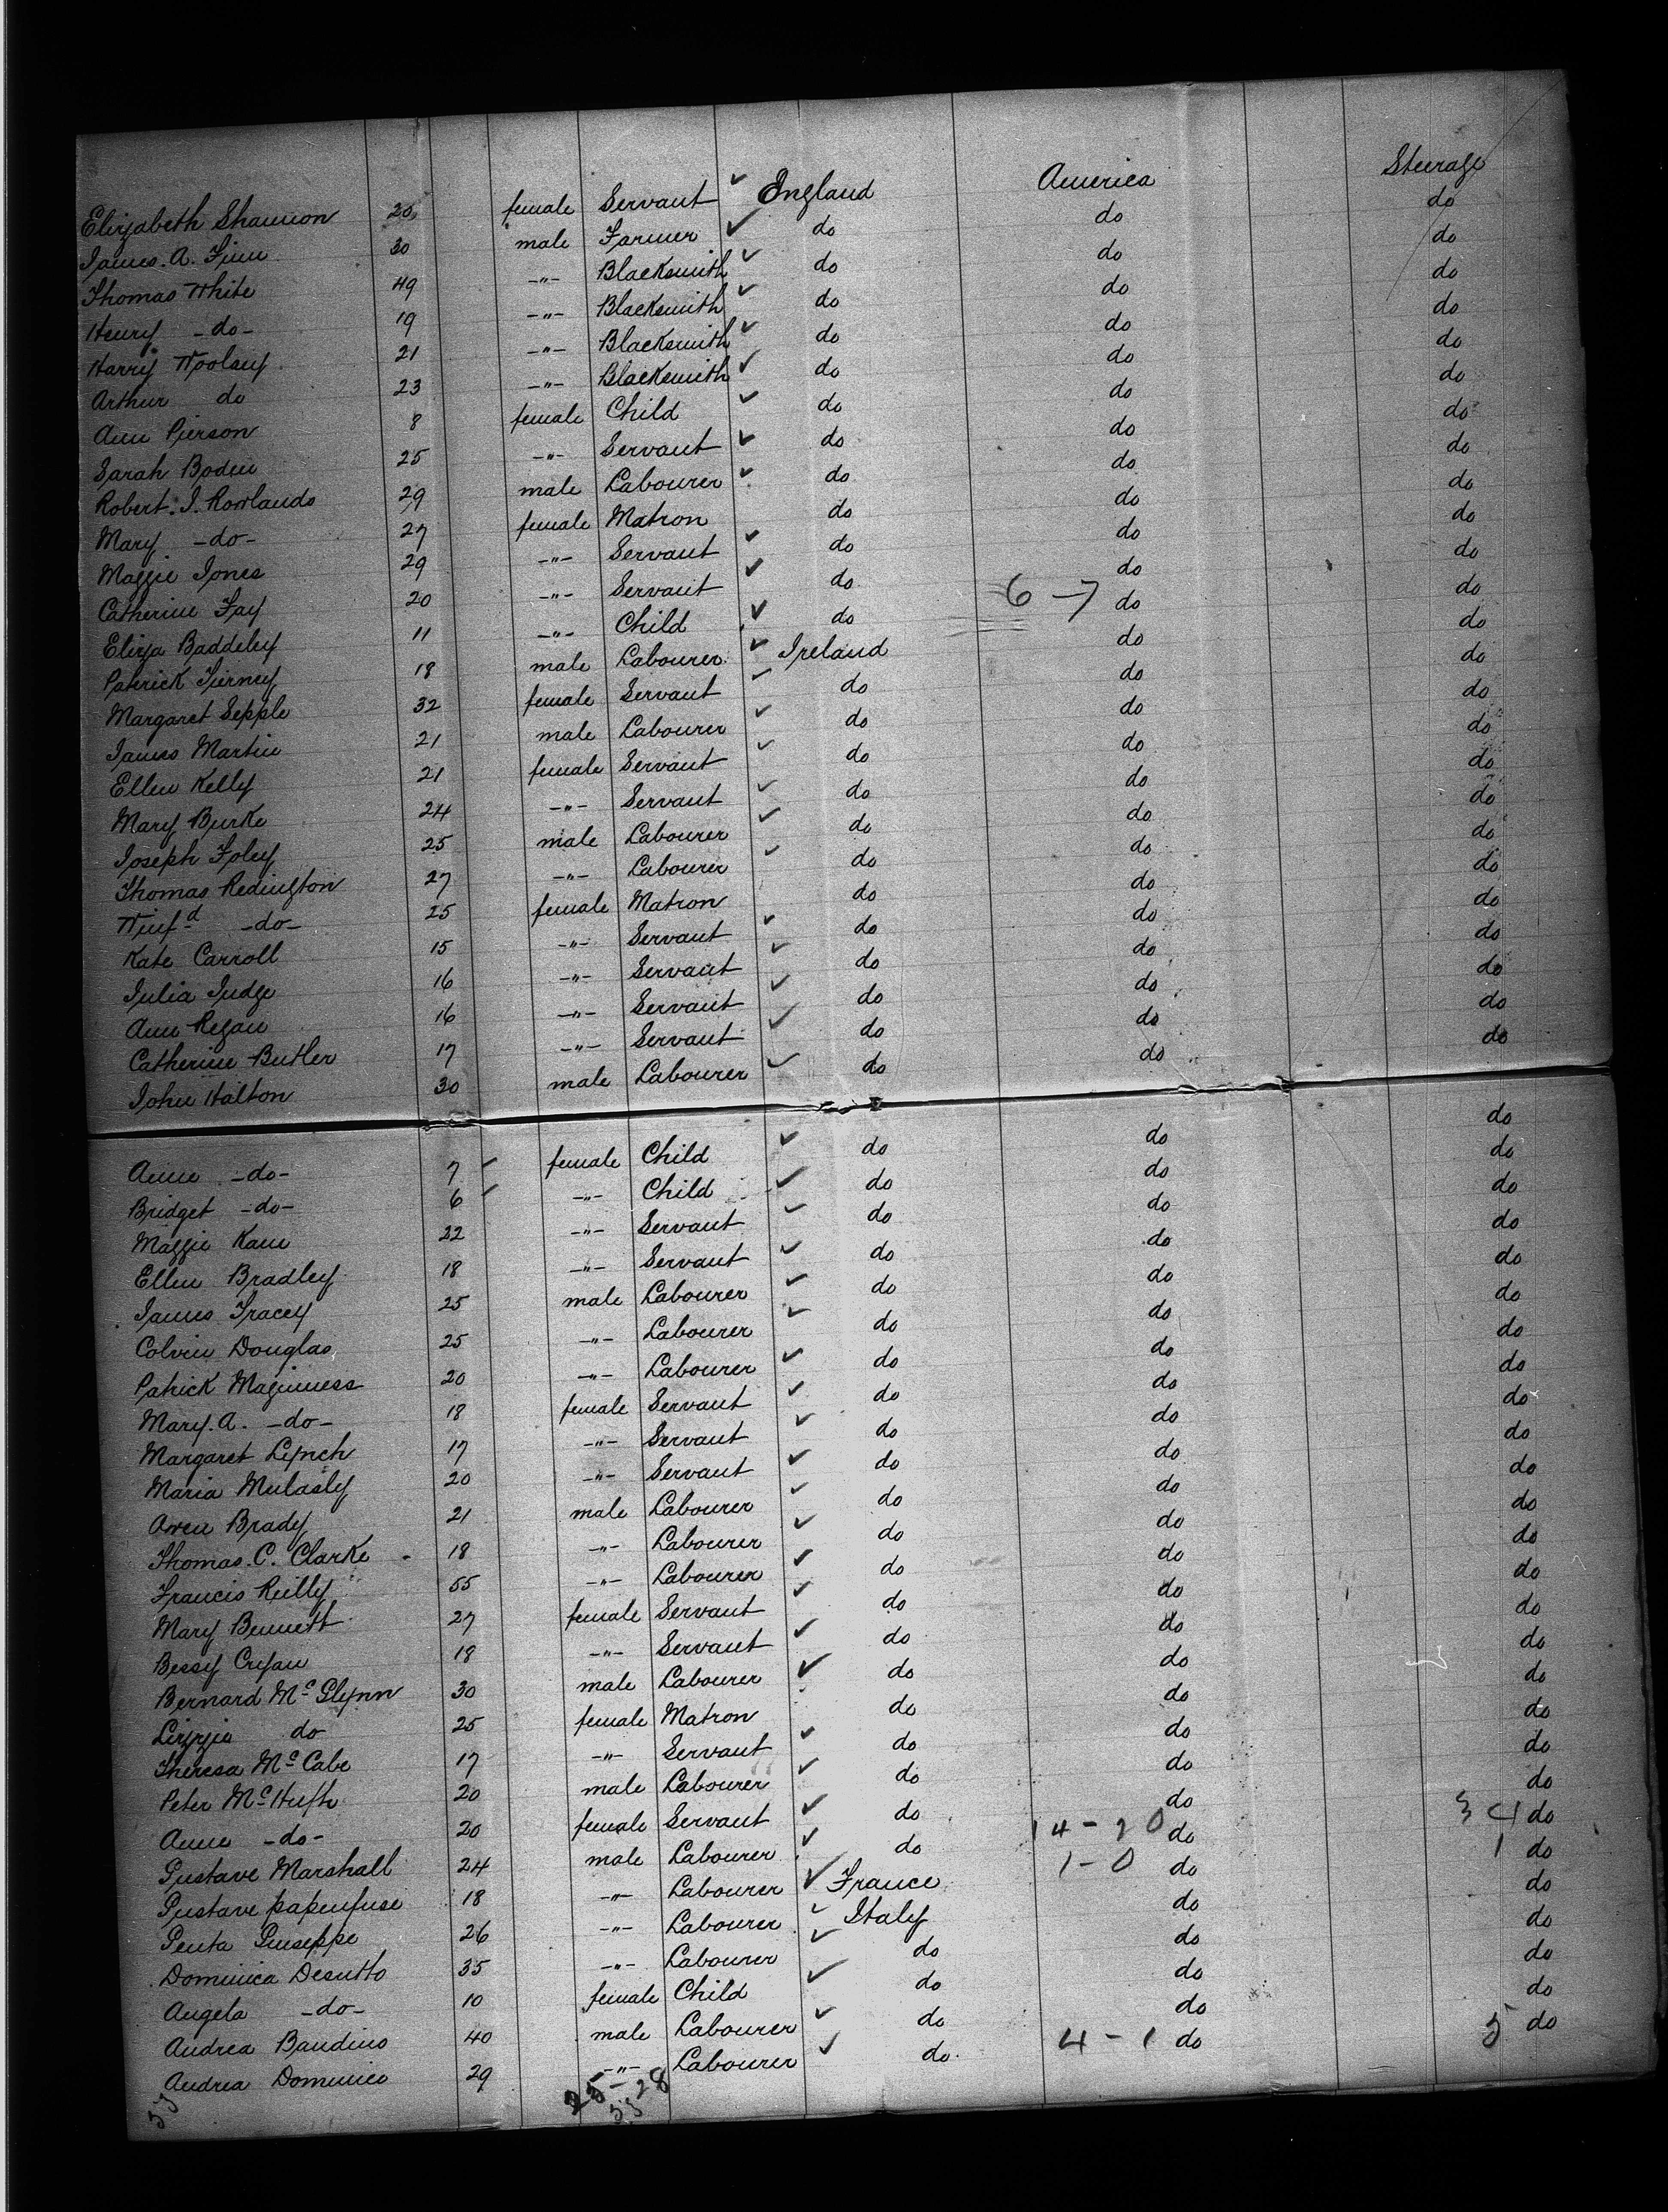 Elizabeth Shannon 20 female Servant England America Steerage
James. A. Finn 30 male Farmer do do do
Thomas White 49 -"- Blacksmith do do do
Henry -do- 19 -"- Blacksmith do do do
Harry Woolsey 21 -"- Blacksmith do do do
Arthur do 23 -"- Blacksmith do do do
Ann Pierson 8 female Child do do do
Sarah Boden 25 -"- Servant do do do
Robert. J. Rowlands 29 male Labourer do do do
Mary -do- 27 female Matron do do do
Maggie Jones 29 -"- Servant do do do
Catherine Fay 20 -"- Servant do do do
Eliza Baddeley 11 -"- Child do 6 - 7 do do
Patrick Tierney 18 male Labourer Ireland do do
Margaret Sepple 32 female Servant do do do
James Martin 21 male Labourer do do do
Ellen Kelly 21 female Servant do do do
Mary Burke 24 -"- Servant do do do
Joseph Foley 25 male Labourer do do do
Thomas Redington 27 -"- Labourer do do do
Winfd -do- 25 female Matron do do do
Kate Carroll 15 -"- Servant do do do
Julia Judge 16 -"- Servant do do do
Ann Regan 16 -"- Servant do do do
Catherine Butler 17 -"- Servant do do do
John Halton 30 male Labourer do do do
Anne -do- 7 female Child do do do
Bridget -do- 6 -"- Child do do do
Maggie Kane 22 -"- Servant do do do
Ellen Bradley 18 -"- Servant do do do
James Tracey 25 male Labourer do do do
Colvin Douglas 25 -"- Labourer do do do
Patrick Maguiness 20 -"- Labourer do do do
Mary. A. -do- 18 female Servant do do do
Margaret Lynch 17 -"- Servant do do do
Maria Mulasly 20 -"- Servant do do do
Owen Brady 21 male Labourer do do do
Thomas. C. Clarke 18 -"- Labourer do do do
Francis Reilly 55 -"- Labourer do do do
Mary Bennett 27 female Servant do do do
Bessy Cryan 18 -"- Servant do do do
Bernard Mc Glynn 30 male Labourer do do do
Lizzie do 25 female Matron do do do
Theresa Mc Cabe 17 -"- Servant do do do
Peter Mc Hugh 20 male Labourer do do do
Anne -do- 20 female Servant do do do
Gustave Marshall 24 male Labourer do 14 - 20 do 34 do
Gustave papenfuse 18 -"- Labourer France 1 - 0 do 1 do
Penta Guiseppe 26 -"- Labourer Italy do do
Dominica Desutto 35 -"- Labourer do do do
Angela -do- 10 female Child do do do
Andrea Bandino 40 male Labourer do do do
Andrea Dominico 29 -"- Labourer do 4 - 1 do 5 do
53 25 - 28
53